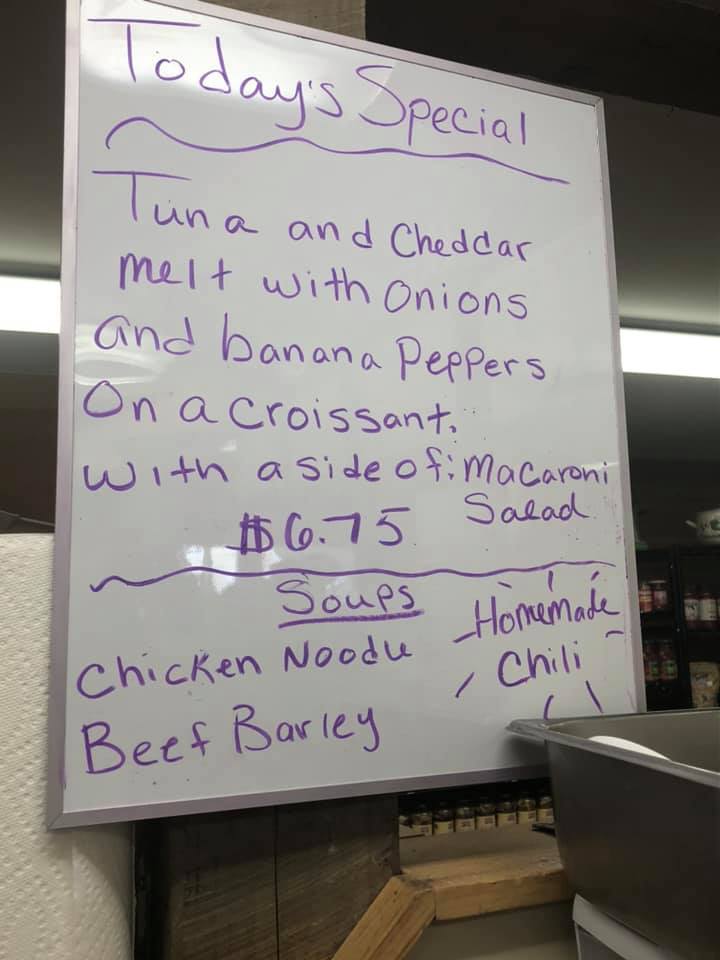 Today's Special
Tuna and Cheddar
melt with onions
and banana Peppers
On a croissant.
with a side of: Macaroni
Salad
$6.75
Soups
Chicken Noodle
Beef Barley
Homemade
Chili